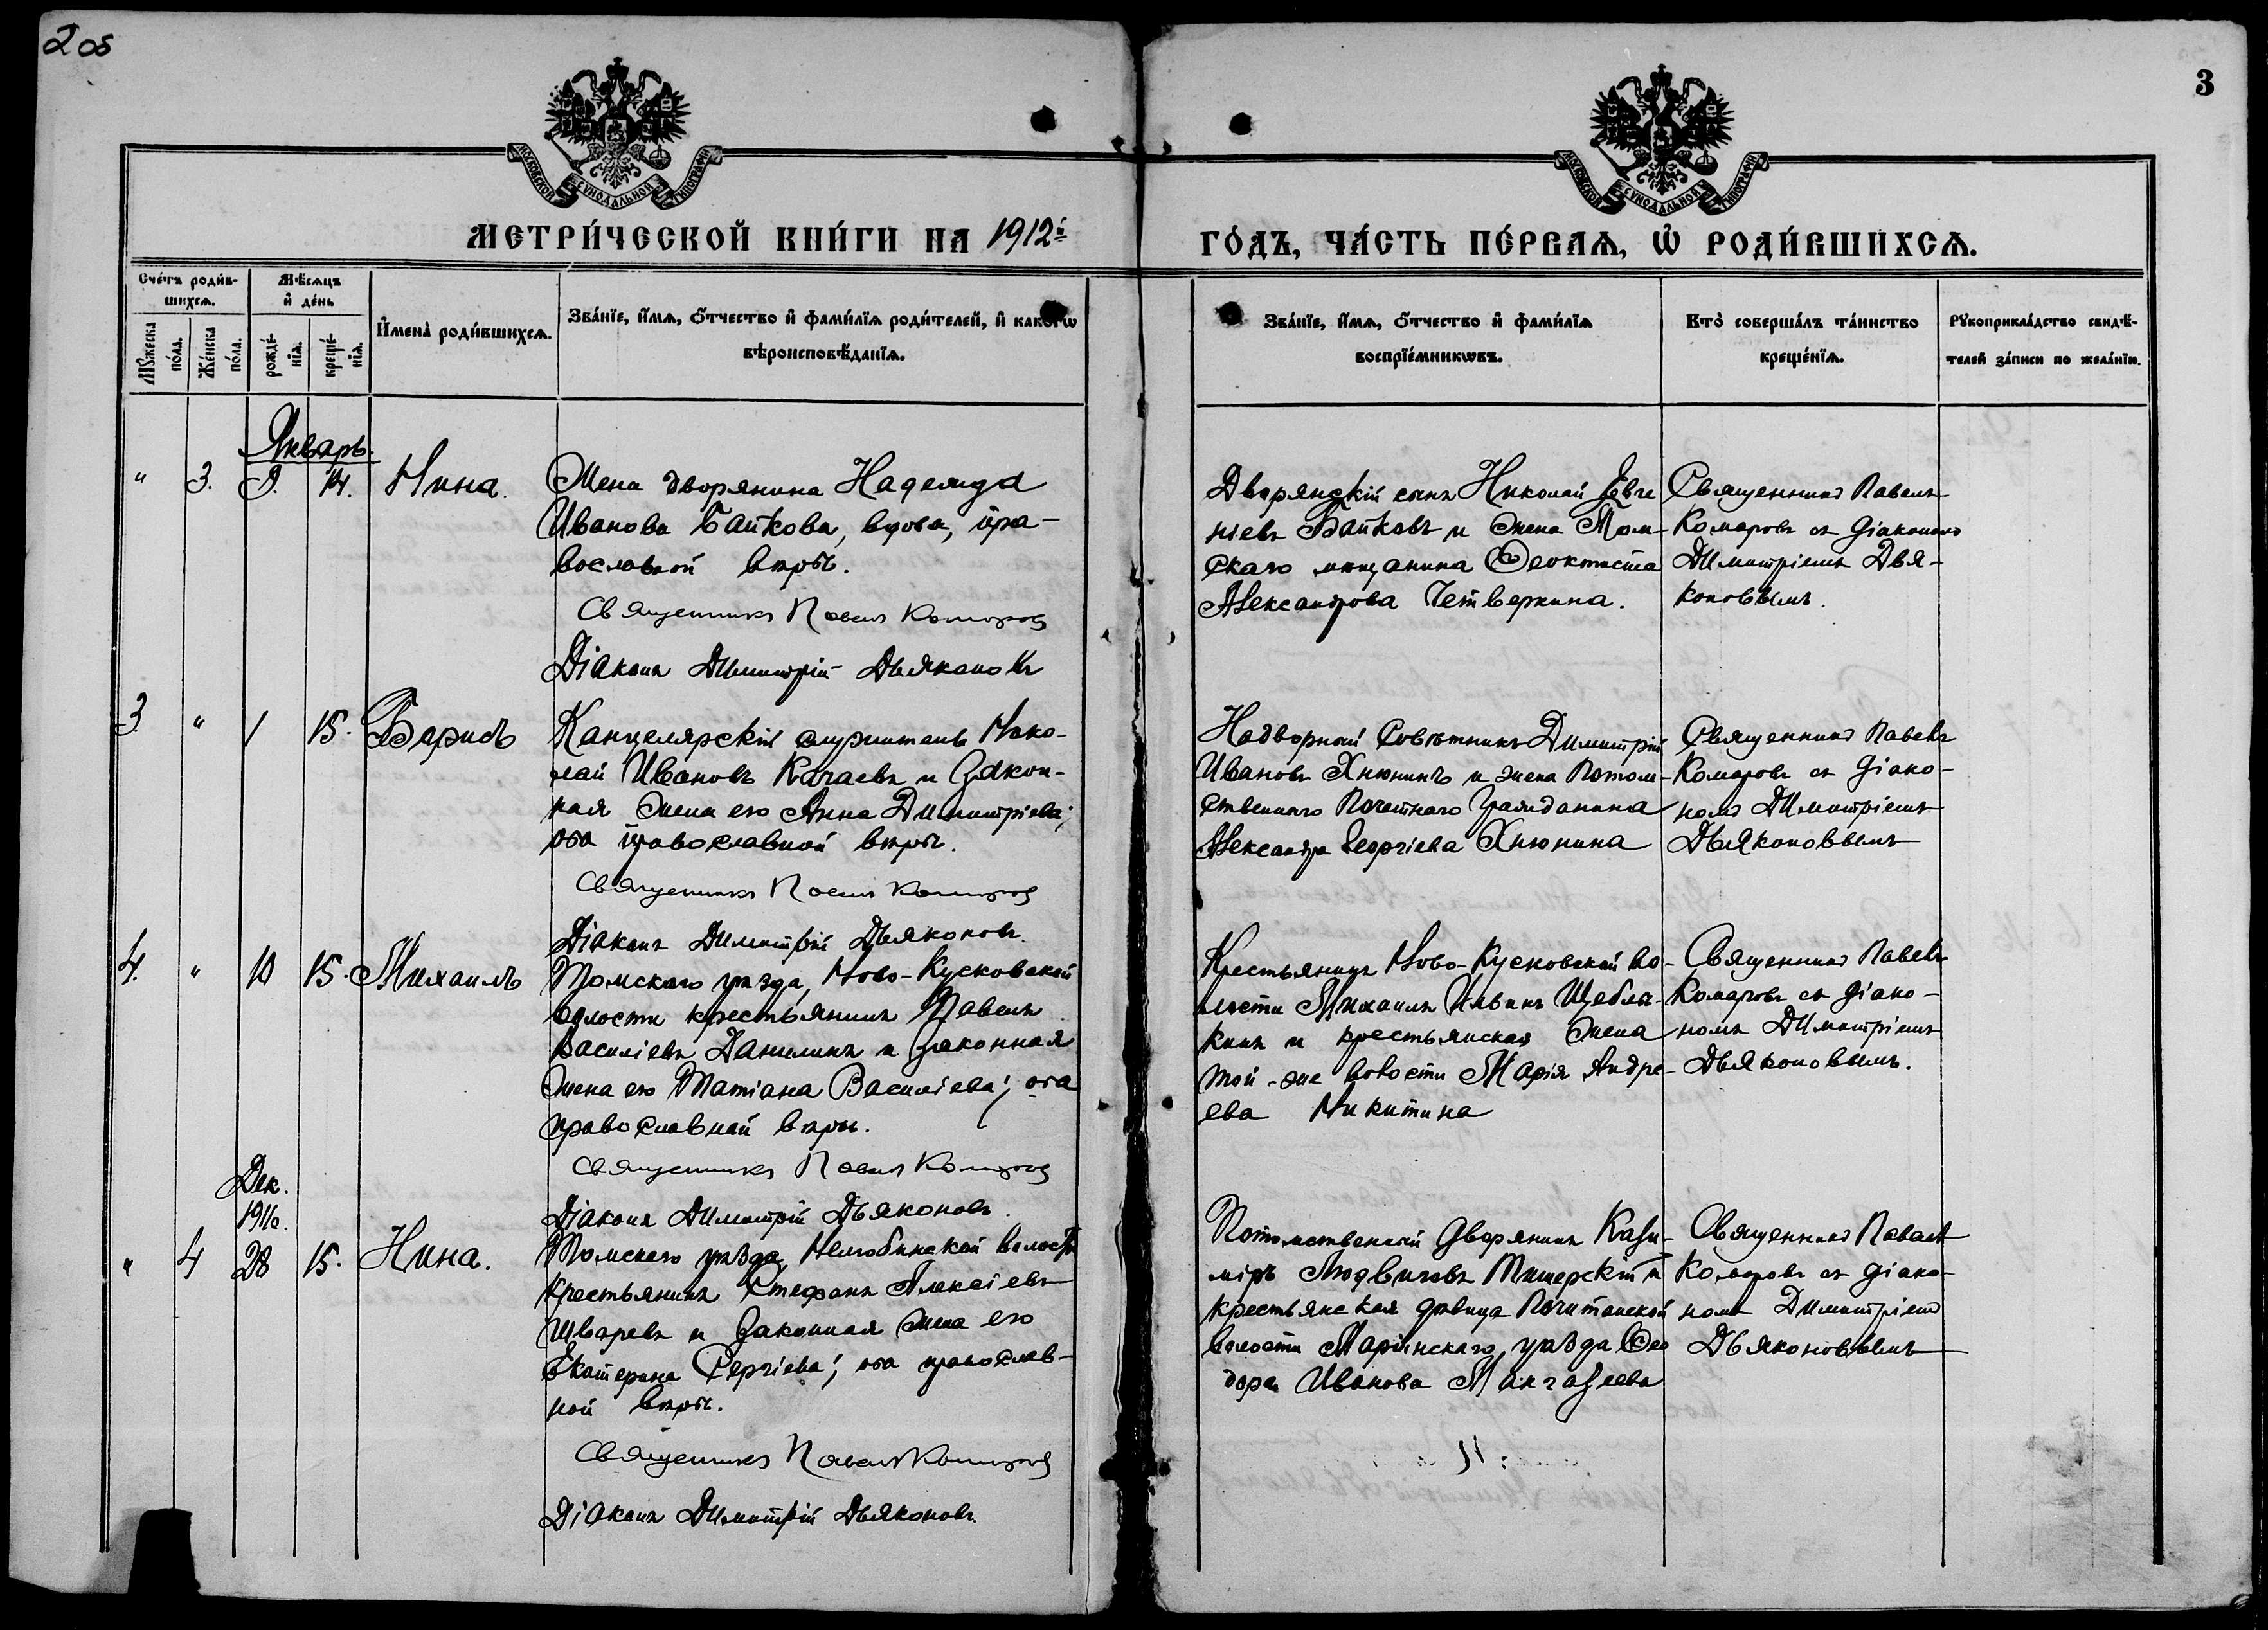 205
3
МОСКОВСКОЙ СѴНОДАЛЬНОЙ ТИПОГРАФІИ
МОСКОВСКОЙ СѴНОДАЛЬНОЙ ТИПОГРАФІИ
МЕТРИ́ЧЕСКОЙ КНИ́ГИ НА 1912й
ГО́ДЪ, ЧА́СТЬ ПЕ́РВАѦ, Ѡ҆ РОДИ́ВШИХСѦ.
Сче́тъ роди́в-
шихсѧ.
Мѣ́сѧцъ
и҆ де́нь
Мꙋ́жеска
по́ла.
Же́нска
по́ла.
рожде́-
нїѧ.
креще́-
нїѧ.
И҆мена̀ роди́вшихсѧ.
Зва́нїе, и҆́мѧ, ѻ҆́тчество и҆ фами́лїѧ роди́телей, и҆ како́гѡ
вѣроисповѣ́данїѧ.
Зва́нїе, и҆́мѧ, ѻ҆́тчество и҆ фами́лїѧ
воспрїе́мникѡвъ.
Кто̀ соверша́лъ та́инство
креще́нїѧ.
Рꙋкоприкла́дство свидѣ́-
телей за́писи по жела́нїю.
Январь.
" 3. 9. 14. Нина.
Жена дворянина Надежда
Иванова Байкова, вдова, пра-
вославной вѣры.
Священникъ Павелъ Комаровъ
Діаконъ Димитрій Дьяконовъ
Дворянскій сынъ Николай Евге
ніевъ Байковъ и жена Том-
скаго мѣщанина Ѳеоктиста
Александрова Четверкина.
Священникъ Павелъ
Комаровъ съ діакономъ
Димитріемъ Дья-
коновымъ.
3 " 1 15. Борисъ
Канцелярскій служитель Нико-
лай Ивановъ Качаевъ и закон-
ная жена его Анна Димитріева;
оба православной вѣры.
Священникъ Павелъ Комаровъ
Діаконъ Димитрій Дьяконовъ.
Надворный Совѣтникъ Димитрій
Ивановъ Хнюнинъ и жена Потом-
ственнаго Почетнаго Гражданина
Александра Георгіева Хнюнина
Священникъ Павелъ
Комаровъ съ діако-
номъ Димитріемъ
Дьяконовымъ
4. " 10 15. Михаилъ
Томскаго уѣзда, Ново-Кусковской
волости крестьянинъ Павелъ
Василіевъ Данилинъ и законная
жена его Татіана Василіева; оба
православной вѣры.
Священникъ Павелъ Комаровъ
Діаконъ Димитрій Дьяконовъ.
Крестьянинъ Ново-Кусковской во-
лости Михаилъ Ильинъ Щебль-
кинъ и крестьянская жена
той-же волости Марія Андре-
ева Никитина
Священникъ Павелъ
Комаровъ съ діако-
номъ Димитріемъ
Дьяконовымъ.
Дек.
1911г.
" 4 28 15. Нина.
Томскаго уѣзда, Нелюбинской волости
крестьянинъ Стефанъ Алексіевъ
Шваревъ и законная жена его
Екатерина Сергіева; оба православ-
ной вѣры.
Священникъ Павелъ Комаровъ
Діаконъ Димитрій Дьяконовъ.
Потомственный дворянинъ Кази-
міръ Людвиговъ Тишерскій и
крестьянская дѣвица Почитанской
волости Маріинскаго уѣзда Ѳео
дора Иванова Мангазеева
Священникъ Павелъ
Комаровъ съ діако-
номъ Димитріемъ
Дьяконовымъ